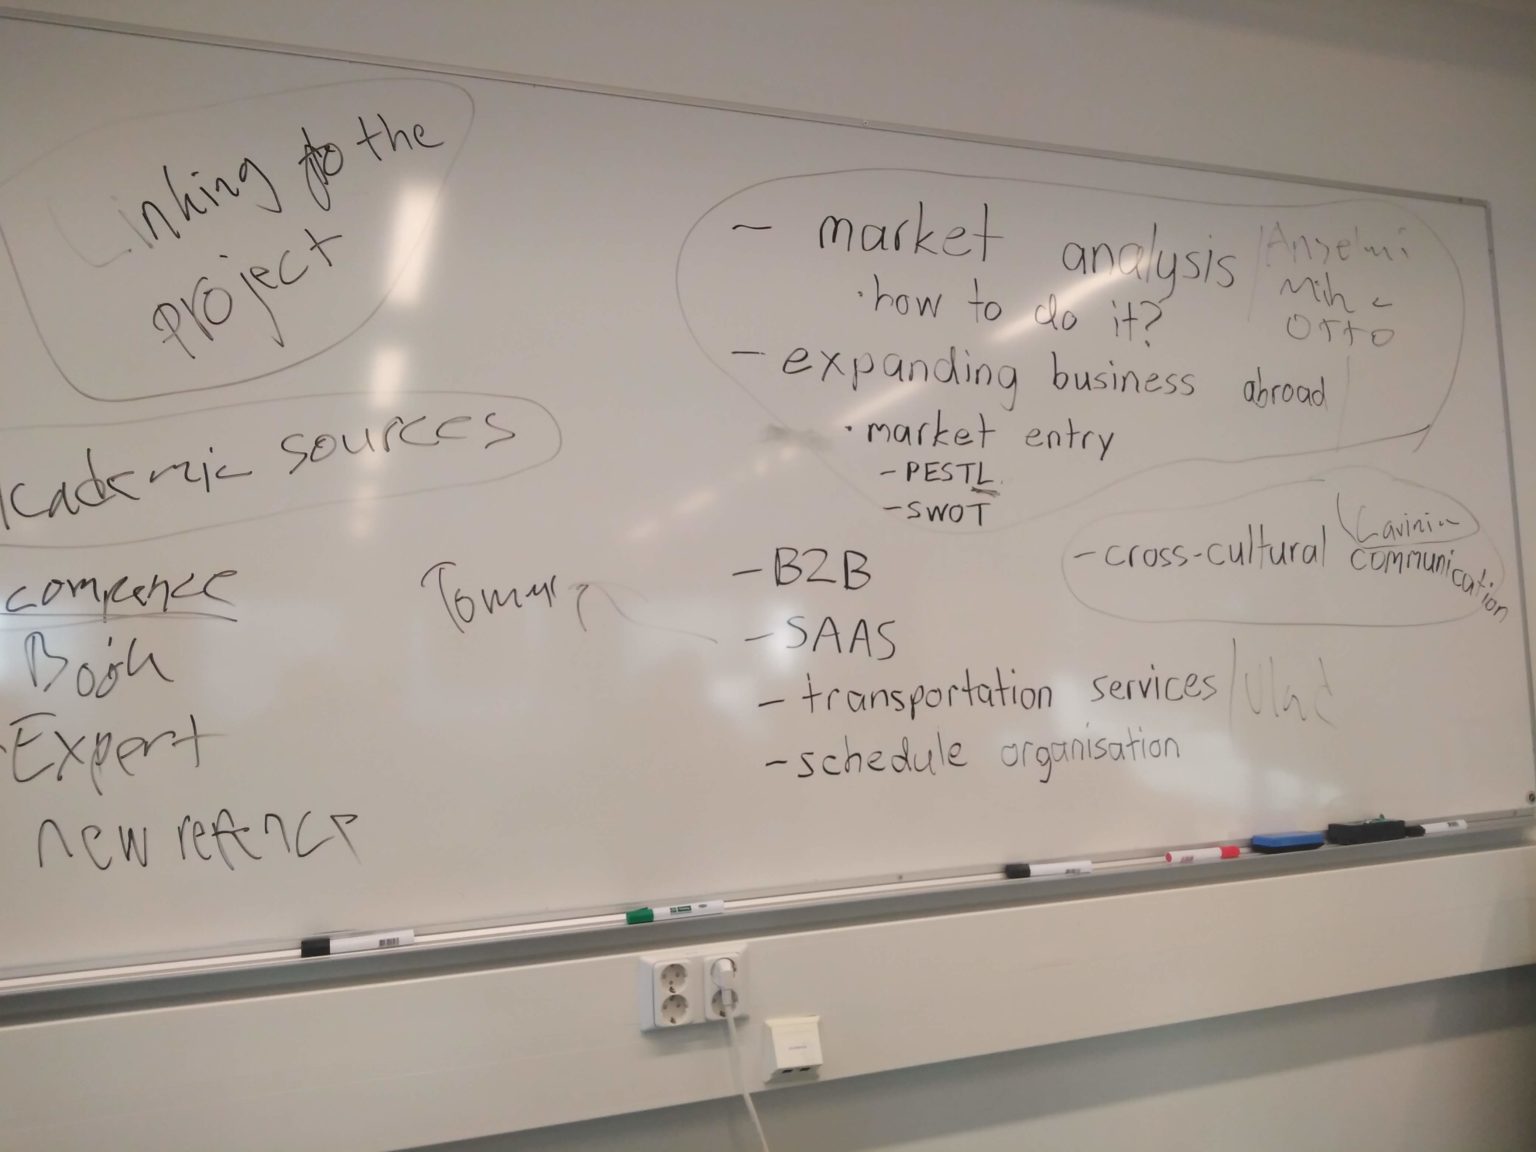 Linking to the
project
Academic sources
Book
Expert
new refence
- market analysis
Anselmi
OTTO
· how to do it?
- expanding business abroad
· market entry
- PESTL
- SWOT
- cross-cultural communication
Lavinia
- B2B
- SAAS
- transportation services / Vlad
- schedule organisation